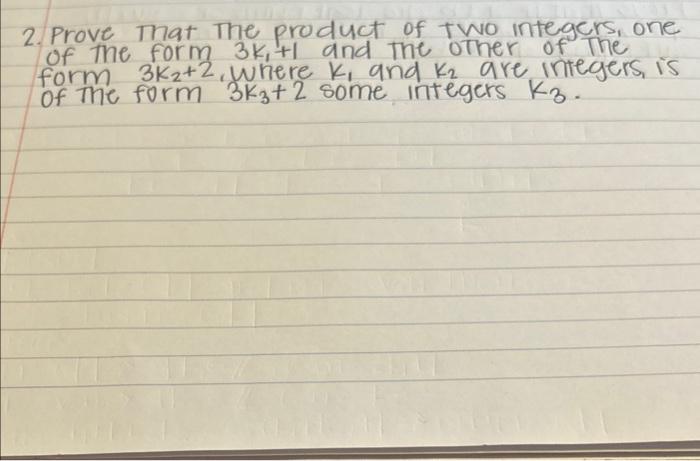 2. Prove That The product of two integers, one
of The form 3k₁+1 and The other of The
form 3k₂+2, where k₁ and k₂ are integers, is
of The form 3k₃+2 some integers k₃.